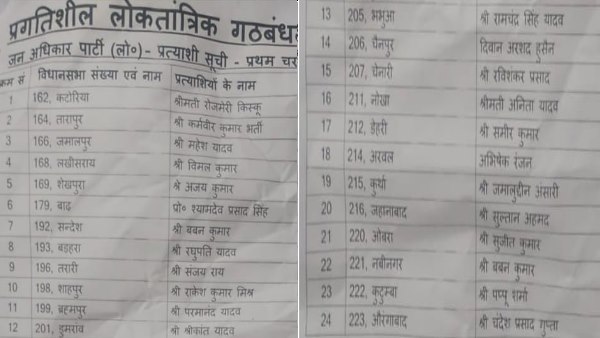 प्रगतिशील लोकतांत्रिक गठबंधन
जन अधिकार पार्टी (लो०)- प्रत्याशी सूची - प्रथम चर
क्रम सं विधानसभा संख्या एवं नाम प्रत्याशियों के नाम
1 162, कटोरिया श्रीमती रोजमेरी किस्कू
2 164, तारापुर श्री कर्मवीर कुमार भर्ती
3 166, जमालपुर श्री महेश यादव
4 168, लखीसराय श्री विमल कुमार
5 169, शेखपुरा श्री अजय कुमार
6 179, बाढ़ प्रो० श्यामदेव प्रसाद सिंह
7 192, सन्देश श्री बबन कुमार
8 193, बड़हरा श्री रघुपति यादव
9 196, तरारी श्री संजय राय
10 198, शाहपुर श्री राकेश कुमार मिश्र
11 199, ब्रहमपुर श्री परमानंद यादव
12 201, डुमरांव श्री श्रीकांत यादव
13 205, भभुआ श्री रामचंद्र सिंह यादव
14 206, चैनपुर दिवान अरशद हुसैन
15 207, चेनारी श्री रविशंकर प्रसाद
16 211, नोखा श्रीमती अनिता यादव
17 212, डेहरी श्री समीर कुमार
18 214, अरवल अभिषेक रंजन
19 215, कुर्था श्री जमालुद्दीन अंसारी
20 216, जहानाबाद श्री सुल्तान अहमद
21 220, ओबरा श्री सुजीत कुमार
22 221, नबीनगर श्री बबन कुमार
23 222, कुटुम्बा श्री पप्पू शर्मा
24 223, औरंगाबाद श्री चंदेश प्रसाद गुप्ता